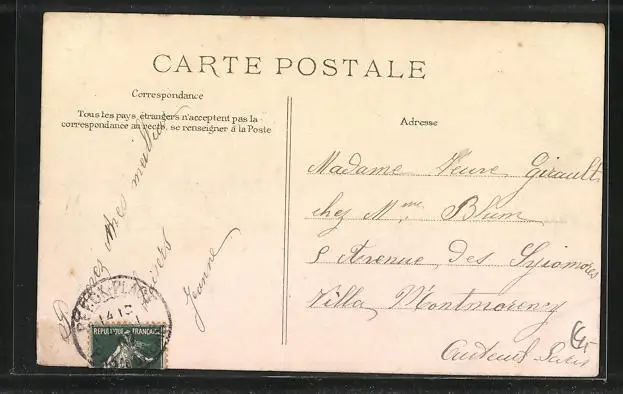 CARTE POSTALE
Correspondance
Tous les pays étrangers n'acceptent pas la
correspondance au recto, se renseigner à la Poste
Adresse
mes meilleurs
Jeanne
Madame Veuve Girault
chez Mme Blum
5 Avenue des Sycomores
Villa Montmorency
Auteuil Paris
BERCK-PLAGE
REPUBLIQUE FRANÇAISE